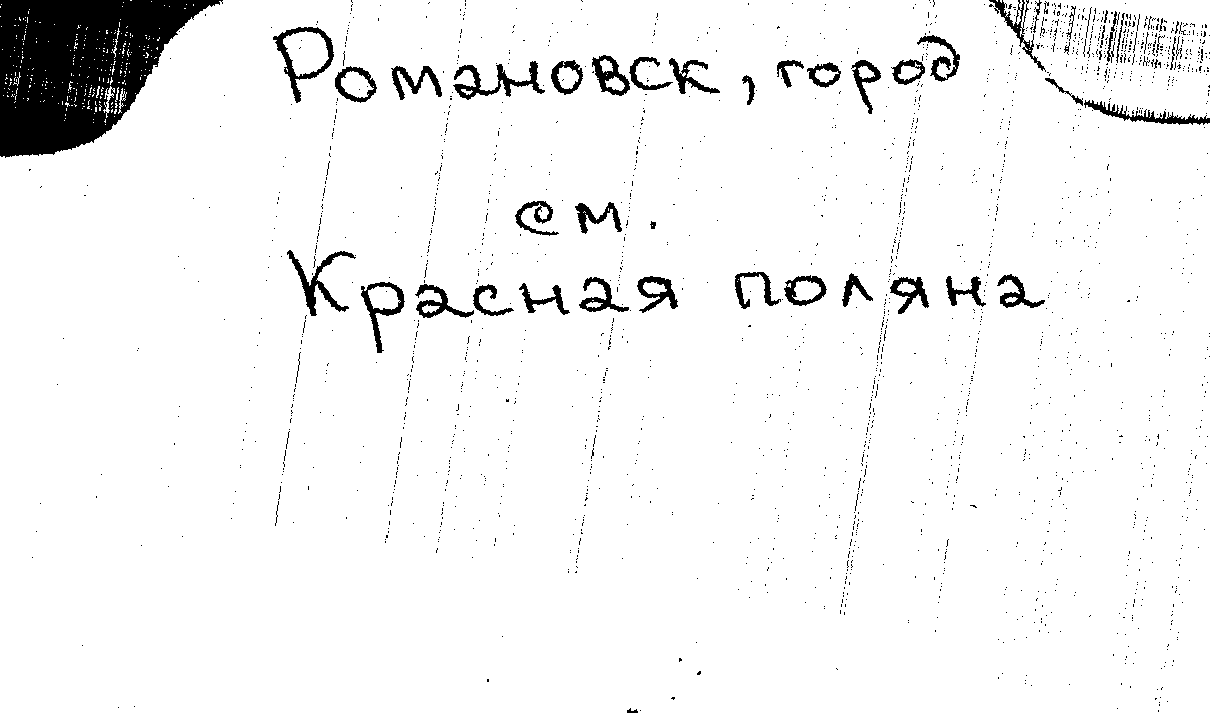 Романовск, город
см.
Красная поляна